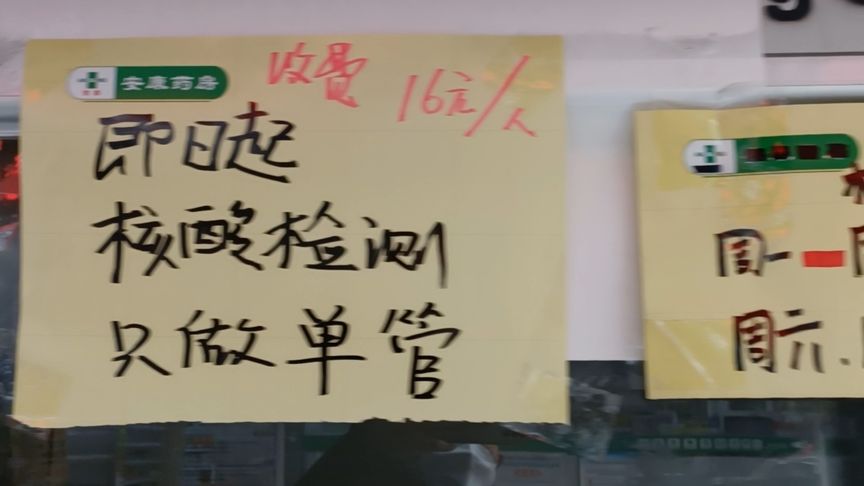 安康药房
收费 16元/人
即日起
核酸检测
只做单管
周一
周六、